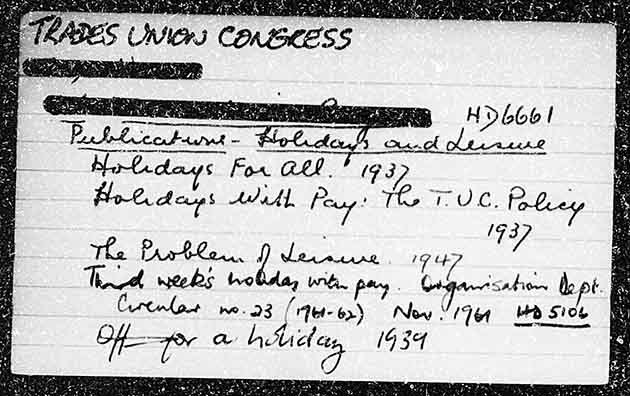 TRADES UNION CONGRESS
HD6661
Publications - Holidays and Leisure
Holidays For All. 1937
Holidays With Pay: The T.U.C. Policy
1937
The Problem of Leisure. 1947
Third week's holiday with pay. Organisation Dept.
Circular no. 23 (1961-62) Nov. 1961 HD 5106
Off for a holiday 1939